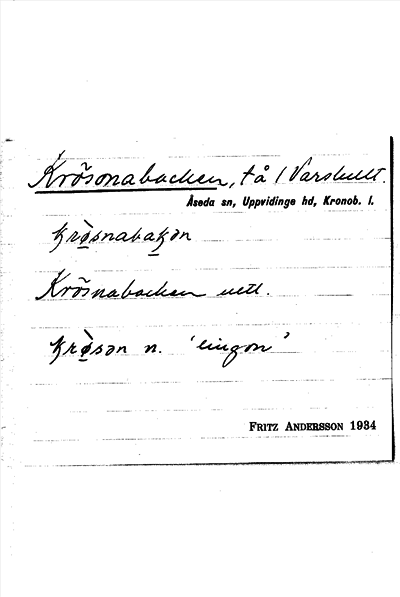 Krösonabacken, tå / Varshult.
Åseda sn, Uppvidinge hd, Kronob. l.
krø̀snabakən
Krösnabacken uttl.
krø̀sən n. 'lingon'
FRITZ ANDERSSON 1934